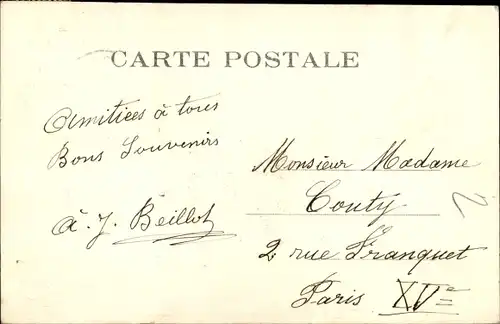 CARTE POSTALE
Amitiées à tous
Bons Souvenirs
A. J. Beillot
Monsieur Madame
Couty
2 rue Franquet
Paris XVe
2